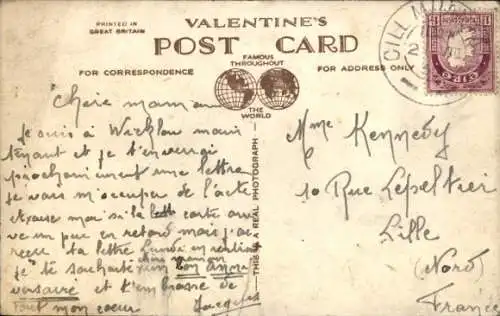 PRINTED IN
GREAT BRITAIN
VALENTINE'S
POST CARD
FAMOUS
THROUGHOUT
THE
WORLD
FOR CORRESPONDENCE
FOR ADDRESS ONLY
THIS IS A REAL PHOTOGRAPH
CILL
EIRE
Chère maman
Je suis à Wicklow main
tenant et je t'enverrai
prochainement une lettre
Je vais m'occuper de l'acte
Excuse moi si la carte arri
ve un peu en retard mais j'ai
reçu ta lettre Lundi en
je te souhaite un bon anni
versaire et t'embrasse de
tout mon coeur Jacques
chère maman
Mme Kennedy
10 Rue Lepeltier
Lille
(Nord)
France